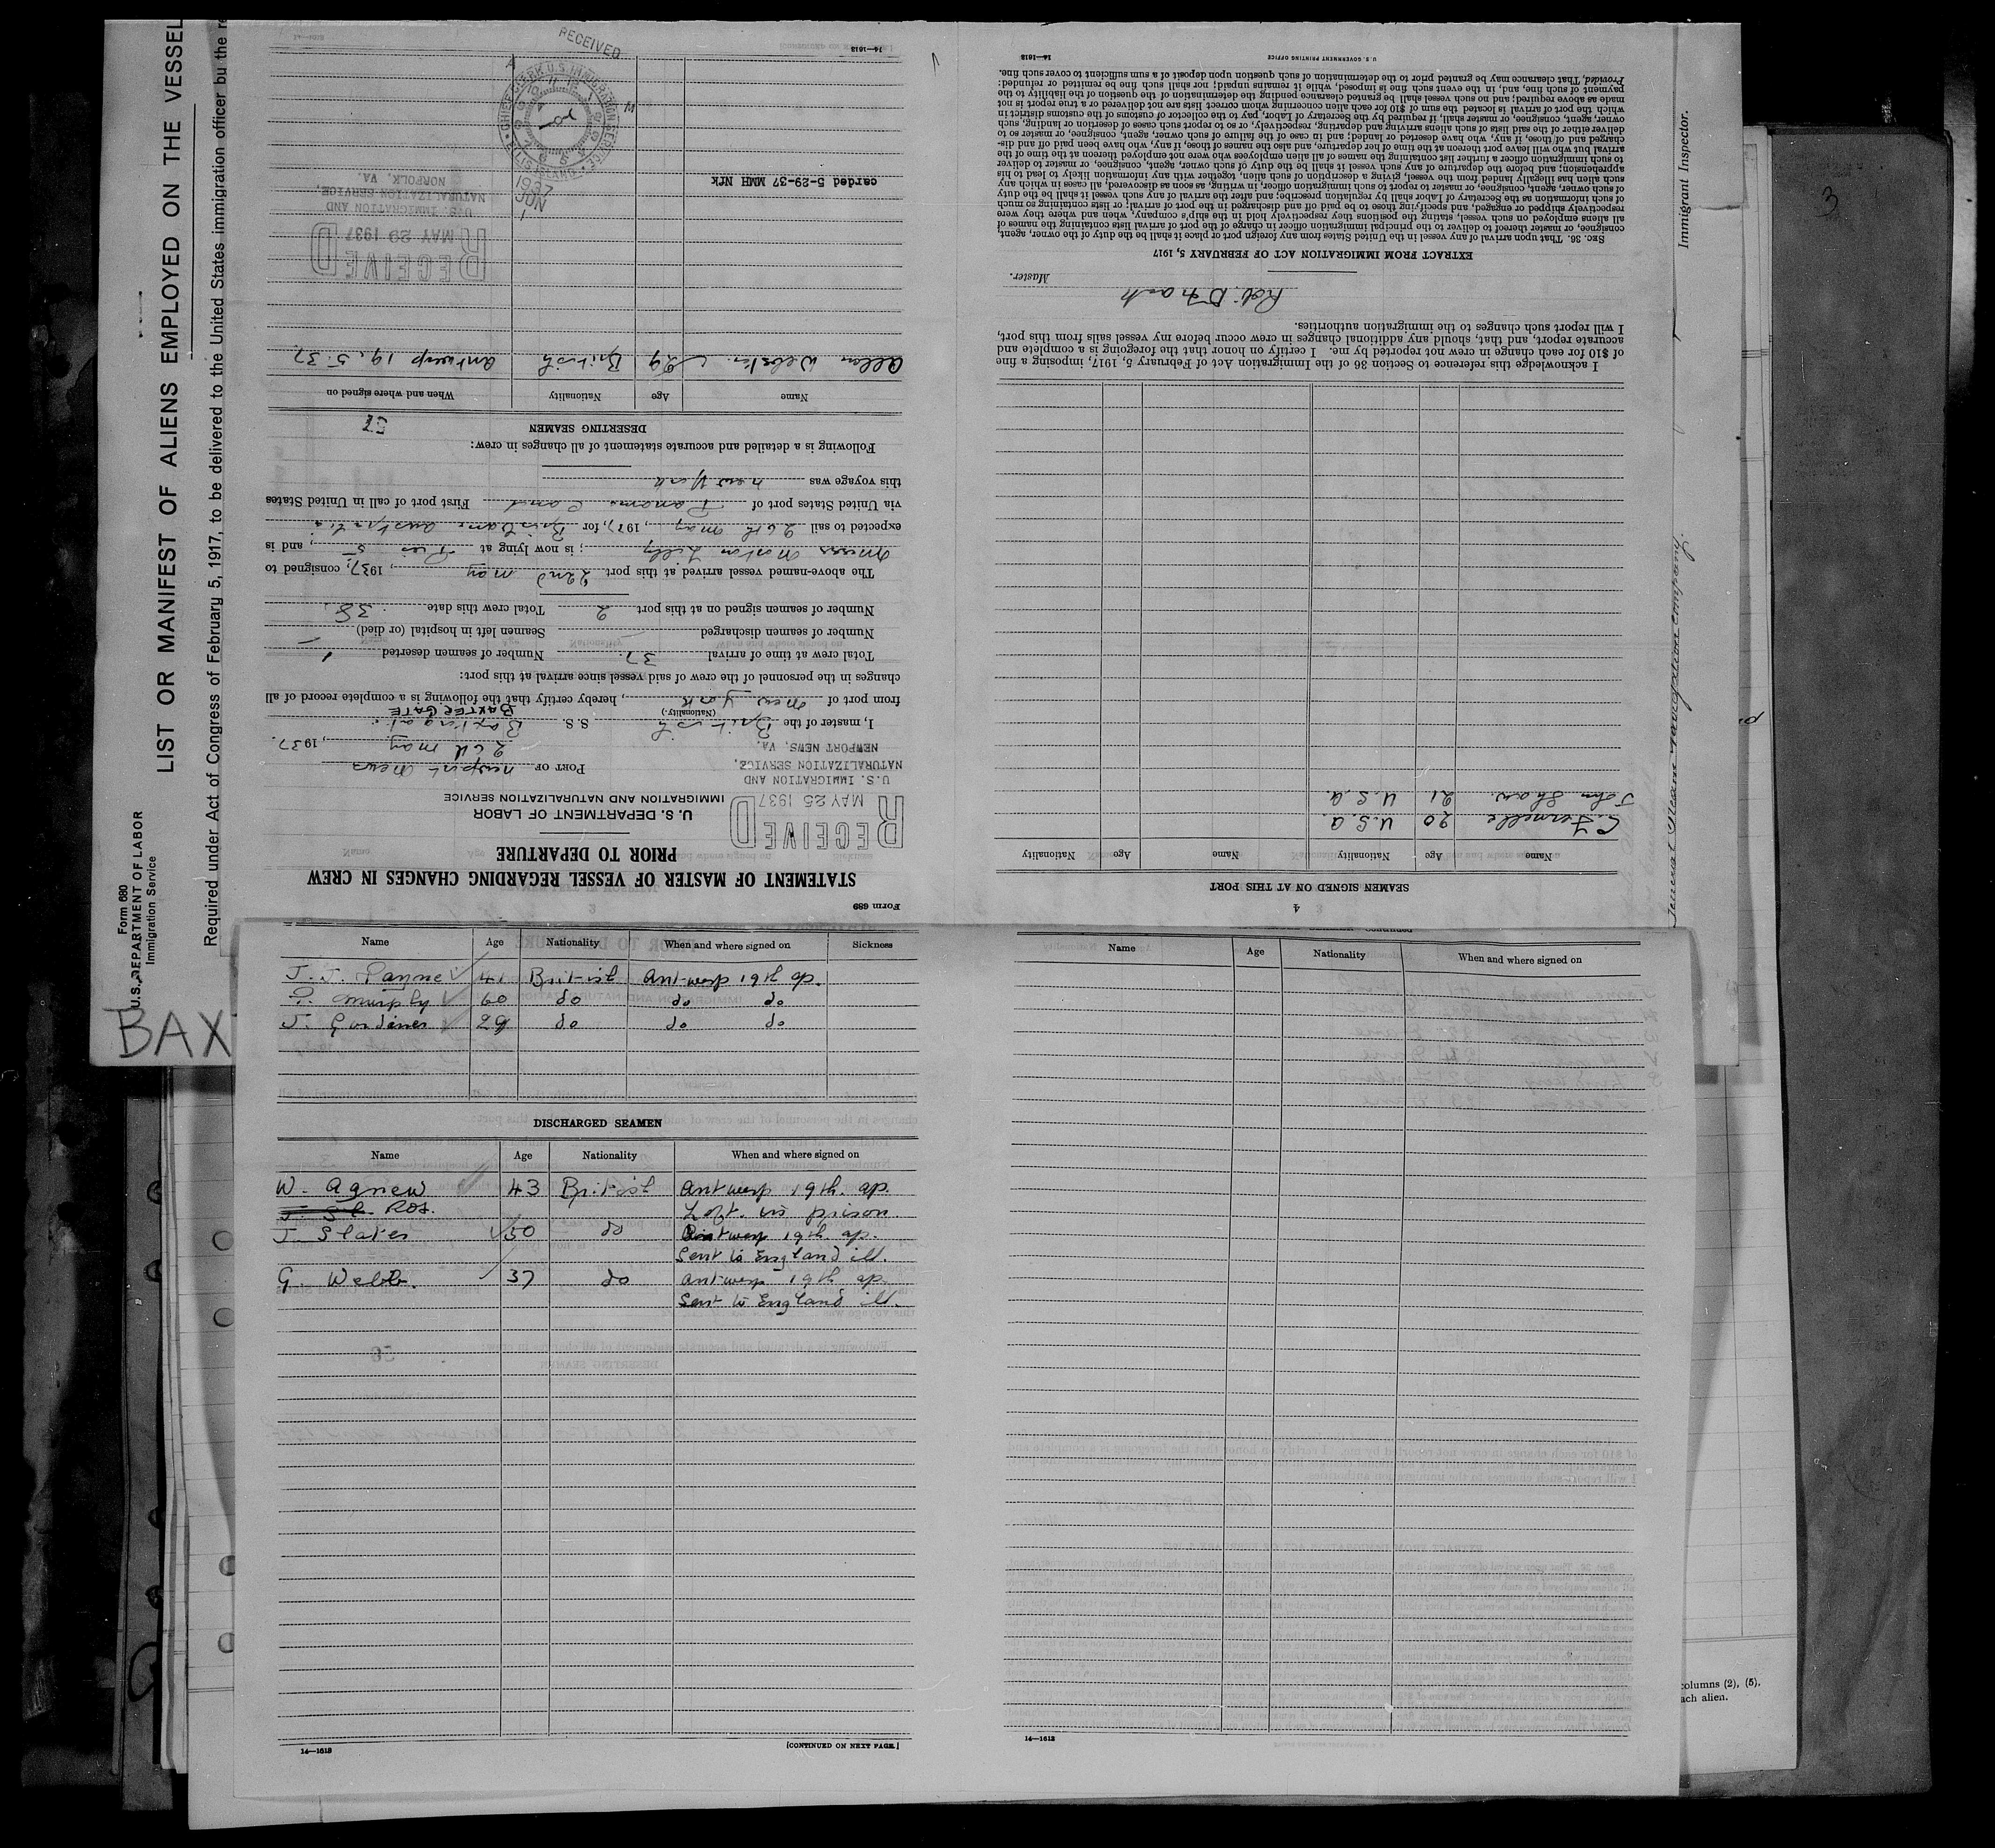 Form 680
U.S. DEPARTMENT OF LABOR
Immigration Service
LIST OR MANIFEST OF ALIENS EMPLOYED ON THE VESSEL
Required under Act of Congress of February 5, 1917, to be delivered to the United States immigration officer by the re
BAX
Form 689
STATEMENT OF MASTER OF VESSEL REGARDING CHANGES IN CREW
PRIOR TO DEPARTURE
U. S. DEPARTMENT OF LABOR
IMMIGRATION AND NATURALIZATION SERVICE
RECEIVED
MAY 25 1937
U. S. IMMIGRATION AND
NATURALIZATION SERVICE,
NEWPORT NEWS, VA.
PORT OF newport news
26th may, 1937.
I, master of the British S. S. Baxtergate
(Nationality) BAXTERGATE
from port of new york, hereby certify that the following is a complete record of all
changes in the personnel of the crew of said vessel since arrival at this port:
Total crew at time of arrival 37 Number of seamen deserted 1
Number of seamen discharged — Seamen left in hospital (or died) —
Number of seamen signed on at this port 2 Total crew this date 38
The above-named vessel arrived at this port 22nd may, 1937; consigned to
messrs morton Lilly; is now lying at Pier 5; and is
expected to sail 26th may, 1937, for Brisbane Australia
via United States port of Panama Canal First port of call in United States
this voyage was new York
Following is a detailed and accurate statement of all changes in crew:
DESERTING SEAMEN
57
Name Age Nationality When and where signed on
Allan Webster 29 British Antwerp 19.5.37
RECEIVED
MAY 29 1937
U. S. IMMIGRATION AND
NATURALIZATION SERVICE,
NORFOLK, VA.
carded 5-29-37 MMH Nfk
1937
JUN
1
CHIEF CLERK U.S. IMMIGRATION SERVICE
ELLIS ISLAND
RECEIVED
14—1613
4
SEAMEN SIGNED ON AT THIS PORT
Name Age Nationality Name Age Nationality
C. Fernelle 20 U.S.A.
John Shaw 21 U.S.A.
I acknowledge this reference to Section 36 of the Immigration Act of February 5, 1917, imposing a fine
of $10 for each change in crew not reported by me. I certify on honor that the foregoing is a complete and
accurate report, and that, should any additional changes in crew occur before my vessel sails from this port,
I will report such changes to the immigration authorities.
Master.
EXTRACT FROM IMMIGRATION ACT OF FEBRUARY 5, 1917
SEC. 36. That upon arrival of any vessel in the United States from any foreign port or place it shall be the duty of the owner, agent,
consignee, or master thereof to deliver to the principal immigration officer in charge of the port of arrival lists containing the names of
all aliens employed on such vessel, stating the positions they respectively hold in the ship's company, when and where they were
respectively shipped or engaged, and specifying those to be paid off and discharged in the port of arrival; or lists containing so much
of such information as the Secretary of Labor shall by regulation prescribe; and after the arrival of any such vessel it shall be the duty
of such owner, agent, consignee, or master to report to such immigration officer, in writing, as soon as discovered, all cases in which any
such alien has illegally landed from the vessel, giving a description of such alien, together with any information likely to lead to his
apprehension; and before the departure of any such vessel it shall be the duty of such owner, agent, consignee, or master to deliver
to such immigration officer a further list containing the names of all alien employees who were not employed thereon at the time of the
arrival but who will leave port thereon at the time of her departure, and also the names of those, if any, who have been paid off and dis-
charged and of those, if any, who have deserted or landed; and in case of the failure of such owner, agent, consignee, or master so to
deliver either of the said lists of such aliens arriving and departing, respectively, or so to report such cases of desertion or landing, such
owner, agent, consignee, or master shall, if required by the Secretary of Labor, pay to the collector of customs of the customs district in
which the port of arrival is located the sum of $10 for each alien concerning whom correct lists are not delivered or a true report is not
made as above required; and no such vessel shall be granted clearance pending the determination of the question of the liability to the
payment of such fine, and, in the event such fine is imposed, while it remains unpaid; nor shall such fine be remitted or refunded:
Provided, That clearance may be granted prior to the determination of such question upon deposit of a sum sufficient to cover such fine.
U. S. GOVERNMENT PRINTING OFFICE 14—1613
Immigrant Inspector.
3
Name Age Nationality When and where signed on Sickness
J. J. Payne 41 British Antwerp 19th ap.
P. Murphy 60 do do do
J. Gardiner 29 do do do
DISCHARGED SEAMEN
Name Age Nationality When and where signed on
W. Agnew 43 British Antwerp 19th. ap.
Left in prison
J Slater 50 do Antwerp 19th. ap.
Sent to England ill.
G. Webb. 37 do Antwerp 19th ap.
Sent to England ill.
14—1613 [CONTINUED ON NEXT PAGE.]
Name Age Nationality When and where signed on
14—1613
columns (2), (5),
ach alien.